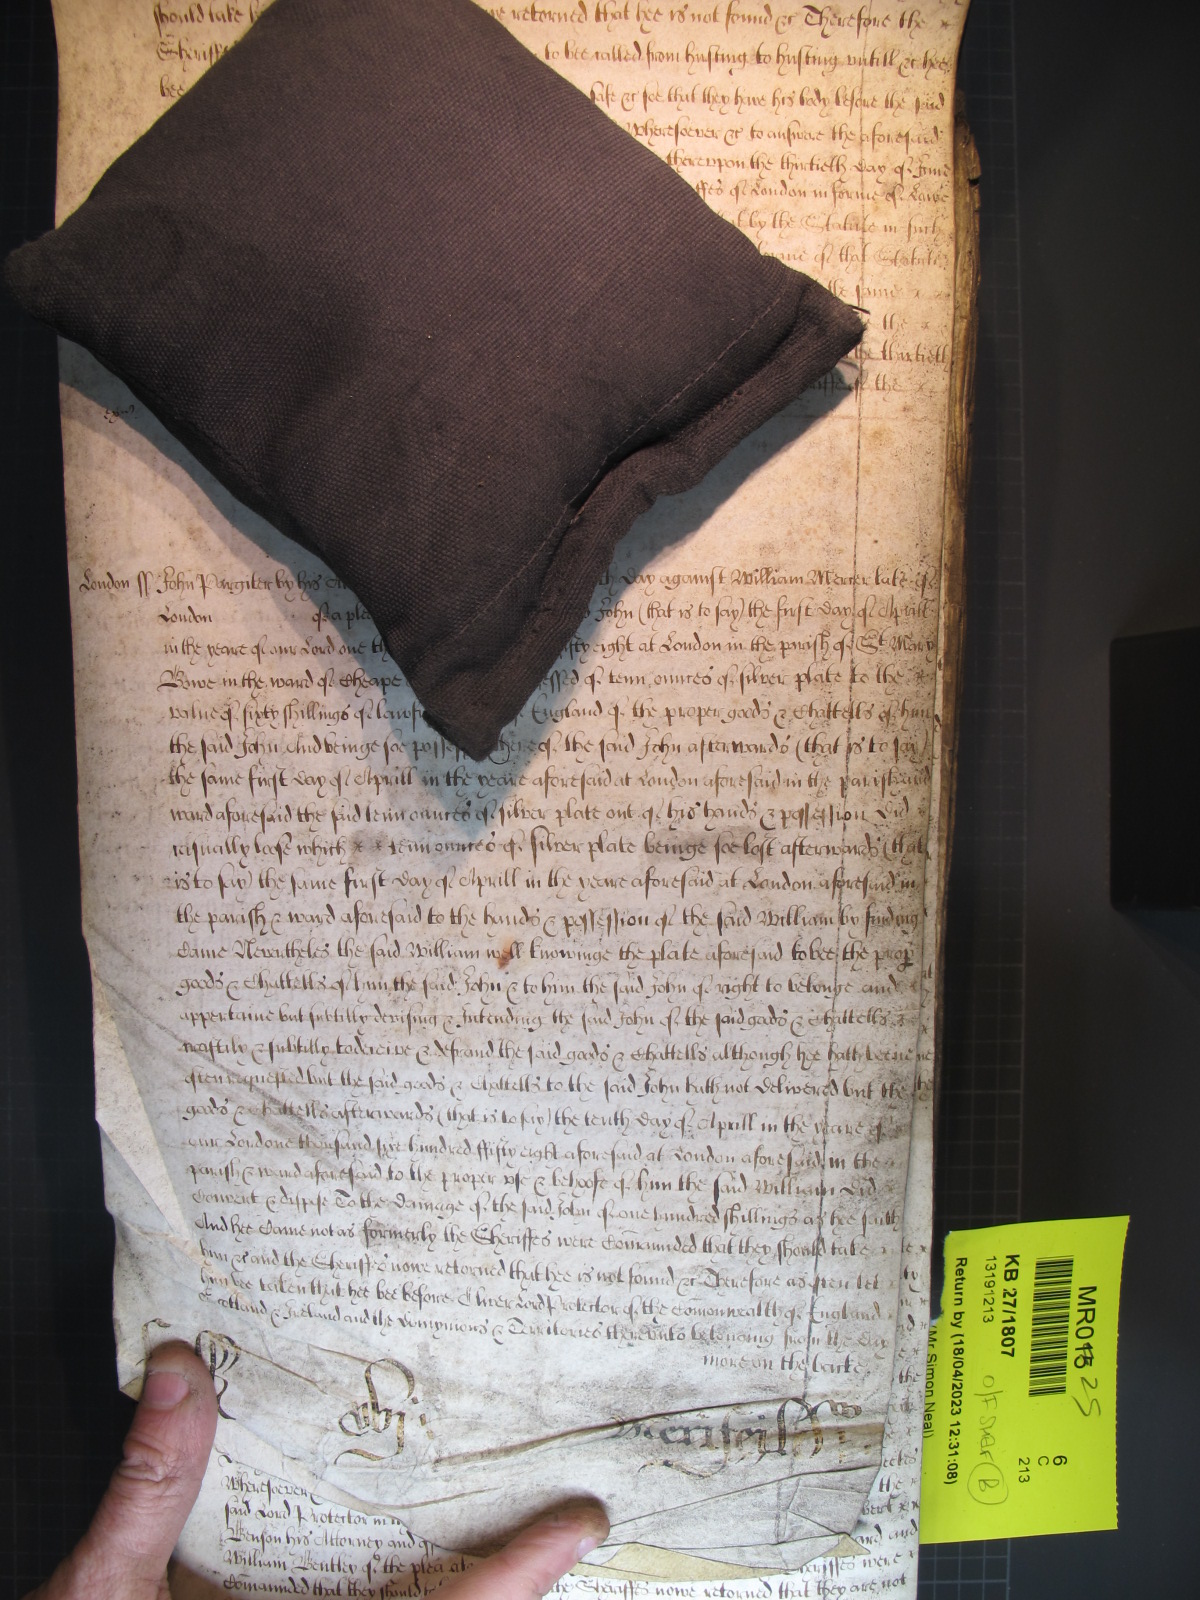 should take
returned that hee is not found &c Therefore the
Sheriff
to bee called from husting to husting untill &c hee
bee
safe &c soe that they have his body before the said
Wheresoever &c to answere the aforesaid
thereupon the thirtieth day of June
of London in forme of Lawe
by the Statute in such
of that Statute
the same
the
the thirtieth
of the
London ss John Pargiter by his
day against William Mercer late of
London of a plea
John (that is to say) the first day of Aprill
in the yeare of our Lord one th
fifty eight at London in the parish of St Mary
Bowe in the ward of Cheape
of tenn ounces of silver plate to the
value of sixty shillings of lawf
England of the proper goods & Chattells of him
the said John And beinge soe possess
thereof the said John afterwards (that is to say)
the same first day of Aprill in the yeare aforesaid at London aforesaid in the parish and
ward aforesaid the said tenn ounces of silver plate out of his hands & possession did
casually loose which x x tenn ounces of silver plate beinge soe lost afterwards (that
is to say) the same first day of Aprill in the yeare aforesaid at London aforesaid in
the parish & ward aforesaid to the hands & possession of the said William by finding
Came Nevertheles the said William well knowinge the plate aforesaid to bee the prop
goods & Chattells of him the said John & to him the said John of right to belonge and
appertaine but subtilly devising & Intending the said John of the said goods & Chattells
craftily & subtilly to deceive & defraud the said goods & Chattells although hee hath beene
often requested but the said goods & Chattells to the said John hath not delivered but the
goods & Chattells afterwards (that is to say) the tenth day of Aprill in the yeare of
our Lord one thousand sixe hundred fifty eight aforesaid at London aforesaid in the
parish & ward aforesaid to the proper use & behoofe of him the said William did
Convert & dispose To the damage of the said John of one hundred shillings as hee saith
And hee Came not as formerly the Sheriffes were Comanded that they should take
him &c and the Sheriffes nowe returned that hee is not found &c Therefore as often let
him bee taken that hee bee before Oliver Lord Protector of the Comonwealth of England
Scotland & Ireland and the Dominions & Territories thereunto belonging from the day
more on the backe
Wheresoever
said Lord Protector in
Benson his Attorney and
William Bentley of the plea
Comanded that they should
the Sheriffes nowe returned that they are not
the
and
Sheriffes were
MR018 25
6
C
213
KB 27/1807
13191213
Return by (18/04/2023 12:31:08)
(Mr Simon Neal)
B